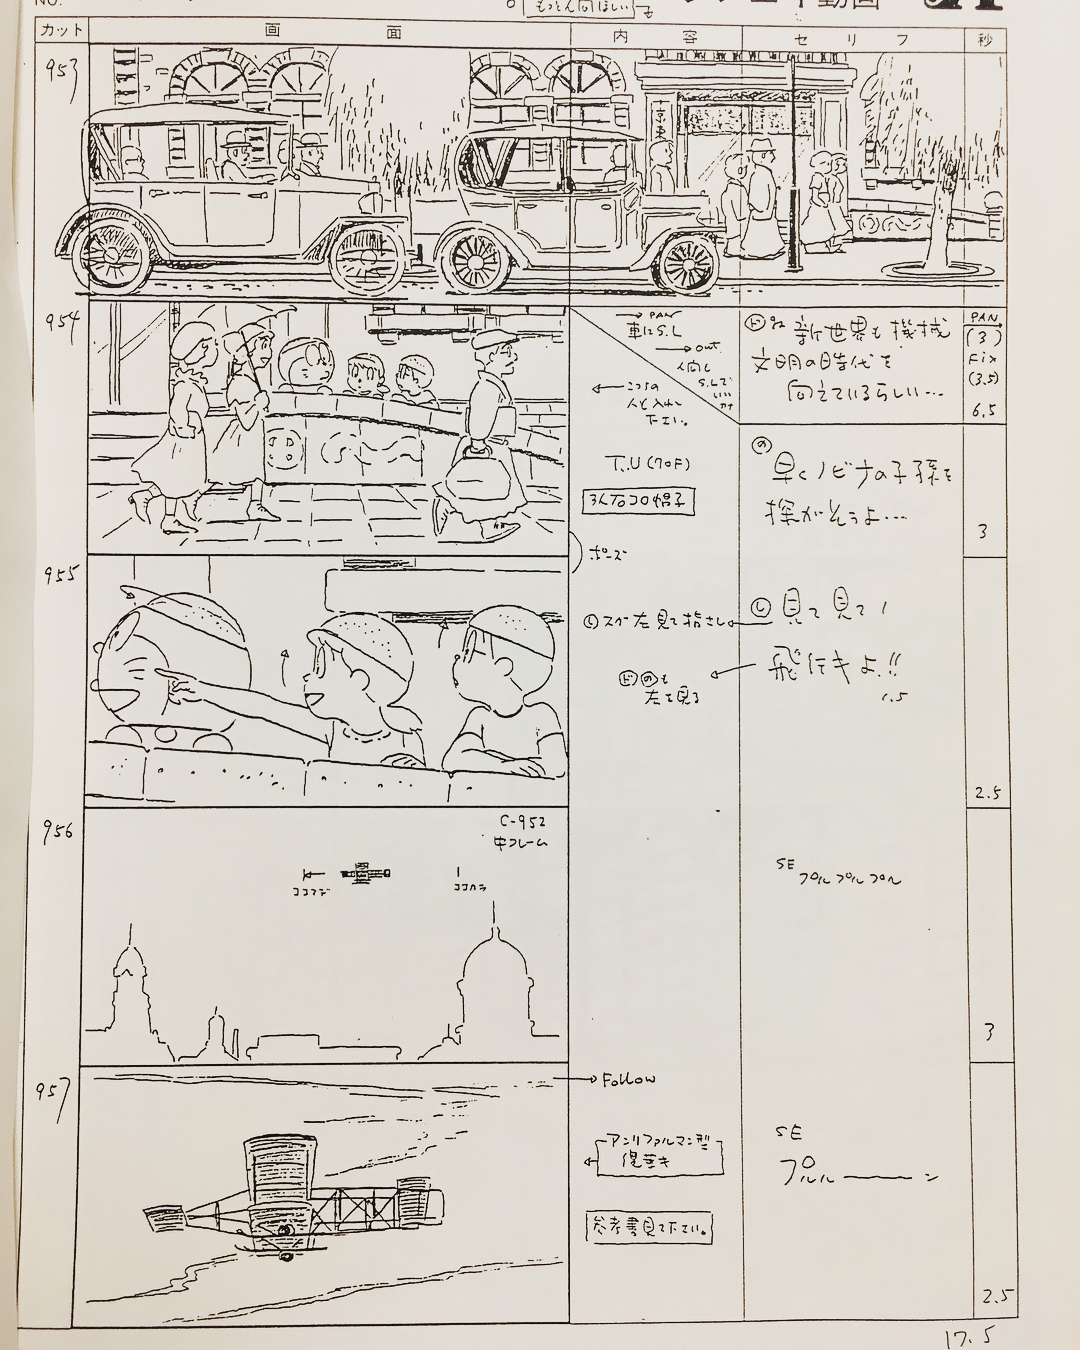 NO.
カット 画 面 内 容 セ リ フ 秒
953
954
→ PAN
車にS.L
→ out
人間も
S.Lで
いい
カナ
← こっちの
人も入れて
下さい。
T.U (70F)
3人石コロ帽子
ポーズ
ド 新世界も機械
文明の時代を
向えているらしい…
PAN
(3)
Fix
(3.5)
6.5
の
早くノビナの子孫を
探がそうよ…
3
955
し 左見て指さし
ド の も
左を見る
し 見て見て!
飛行キよ!!
1.5
2.5
956
C-952
中フレーム
ココマデ
ココカラ
SE
プルプルプル
3
957
→ Follow
アンリファルマン型
複葉キ
参考書見て下さい。
SE
プルル——ン
2.5
17.5